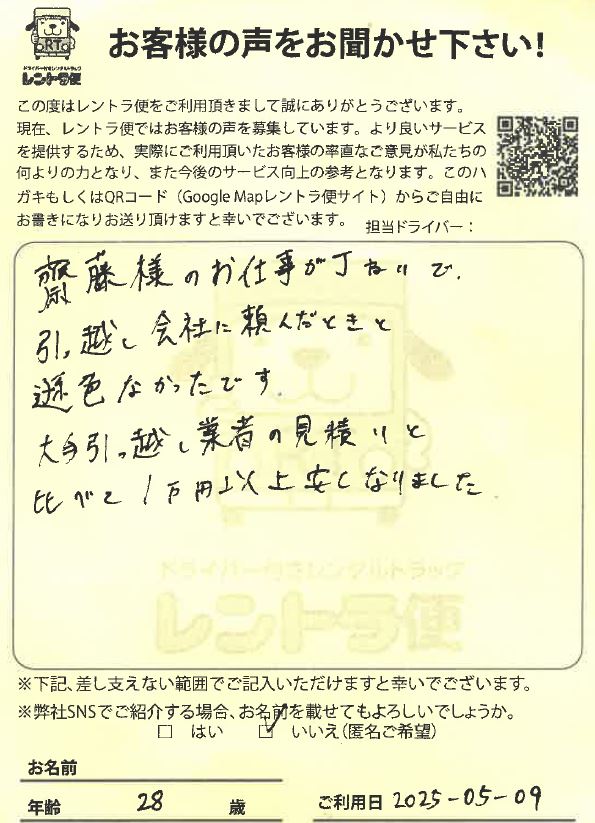 お客様の声をお聞かせ下さい!
RT
ドライバー付きレンタルトラック
レントラ便
この度はレントラ便をご利用頂きまして誠にありがとうございます。
現在、レントラ便ではお客様の声を募集しています。より良いサービス
を提供するため、実際にご利用頂いたお客様の率直なご意見が私たちの
何よりの力となり、また今後のサービス向上の参考となります。このハ
ガキもしくはQRコード（Google Mapレントラ便サイト）からご自由に
お書きになりお送り頂けますと幸いでございます。
担当ドライバー：
齋藤様のお仕事が丁ねいで、
引っ越し会社に頼んだときと
遜色なかったです。
大手引っ越し業者の見積りと
比べて1万円以上安くなりました
ドライバー付きレンタルトラック
レントラ便
※下記、差し支えない範囲でご記入いただけますと幸いでございます。
※弊社SNSでご紹介する場合、お名前を載せてもよろしいでしょうか。
□ はい ☑ いいえ（匿名ご希望）
お名前
年齢 28 歳 ご利用日 2025-05-09